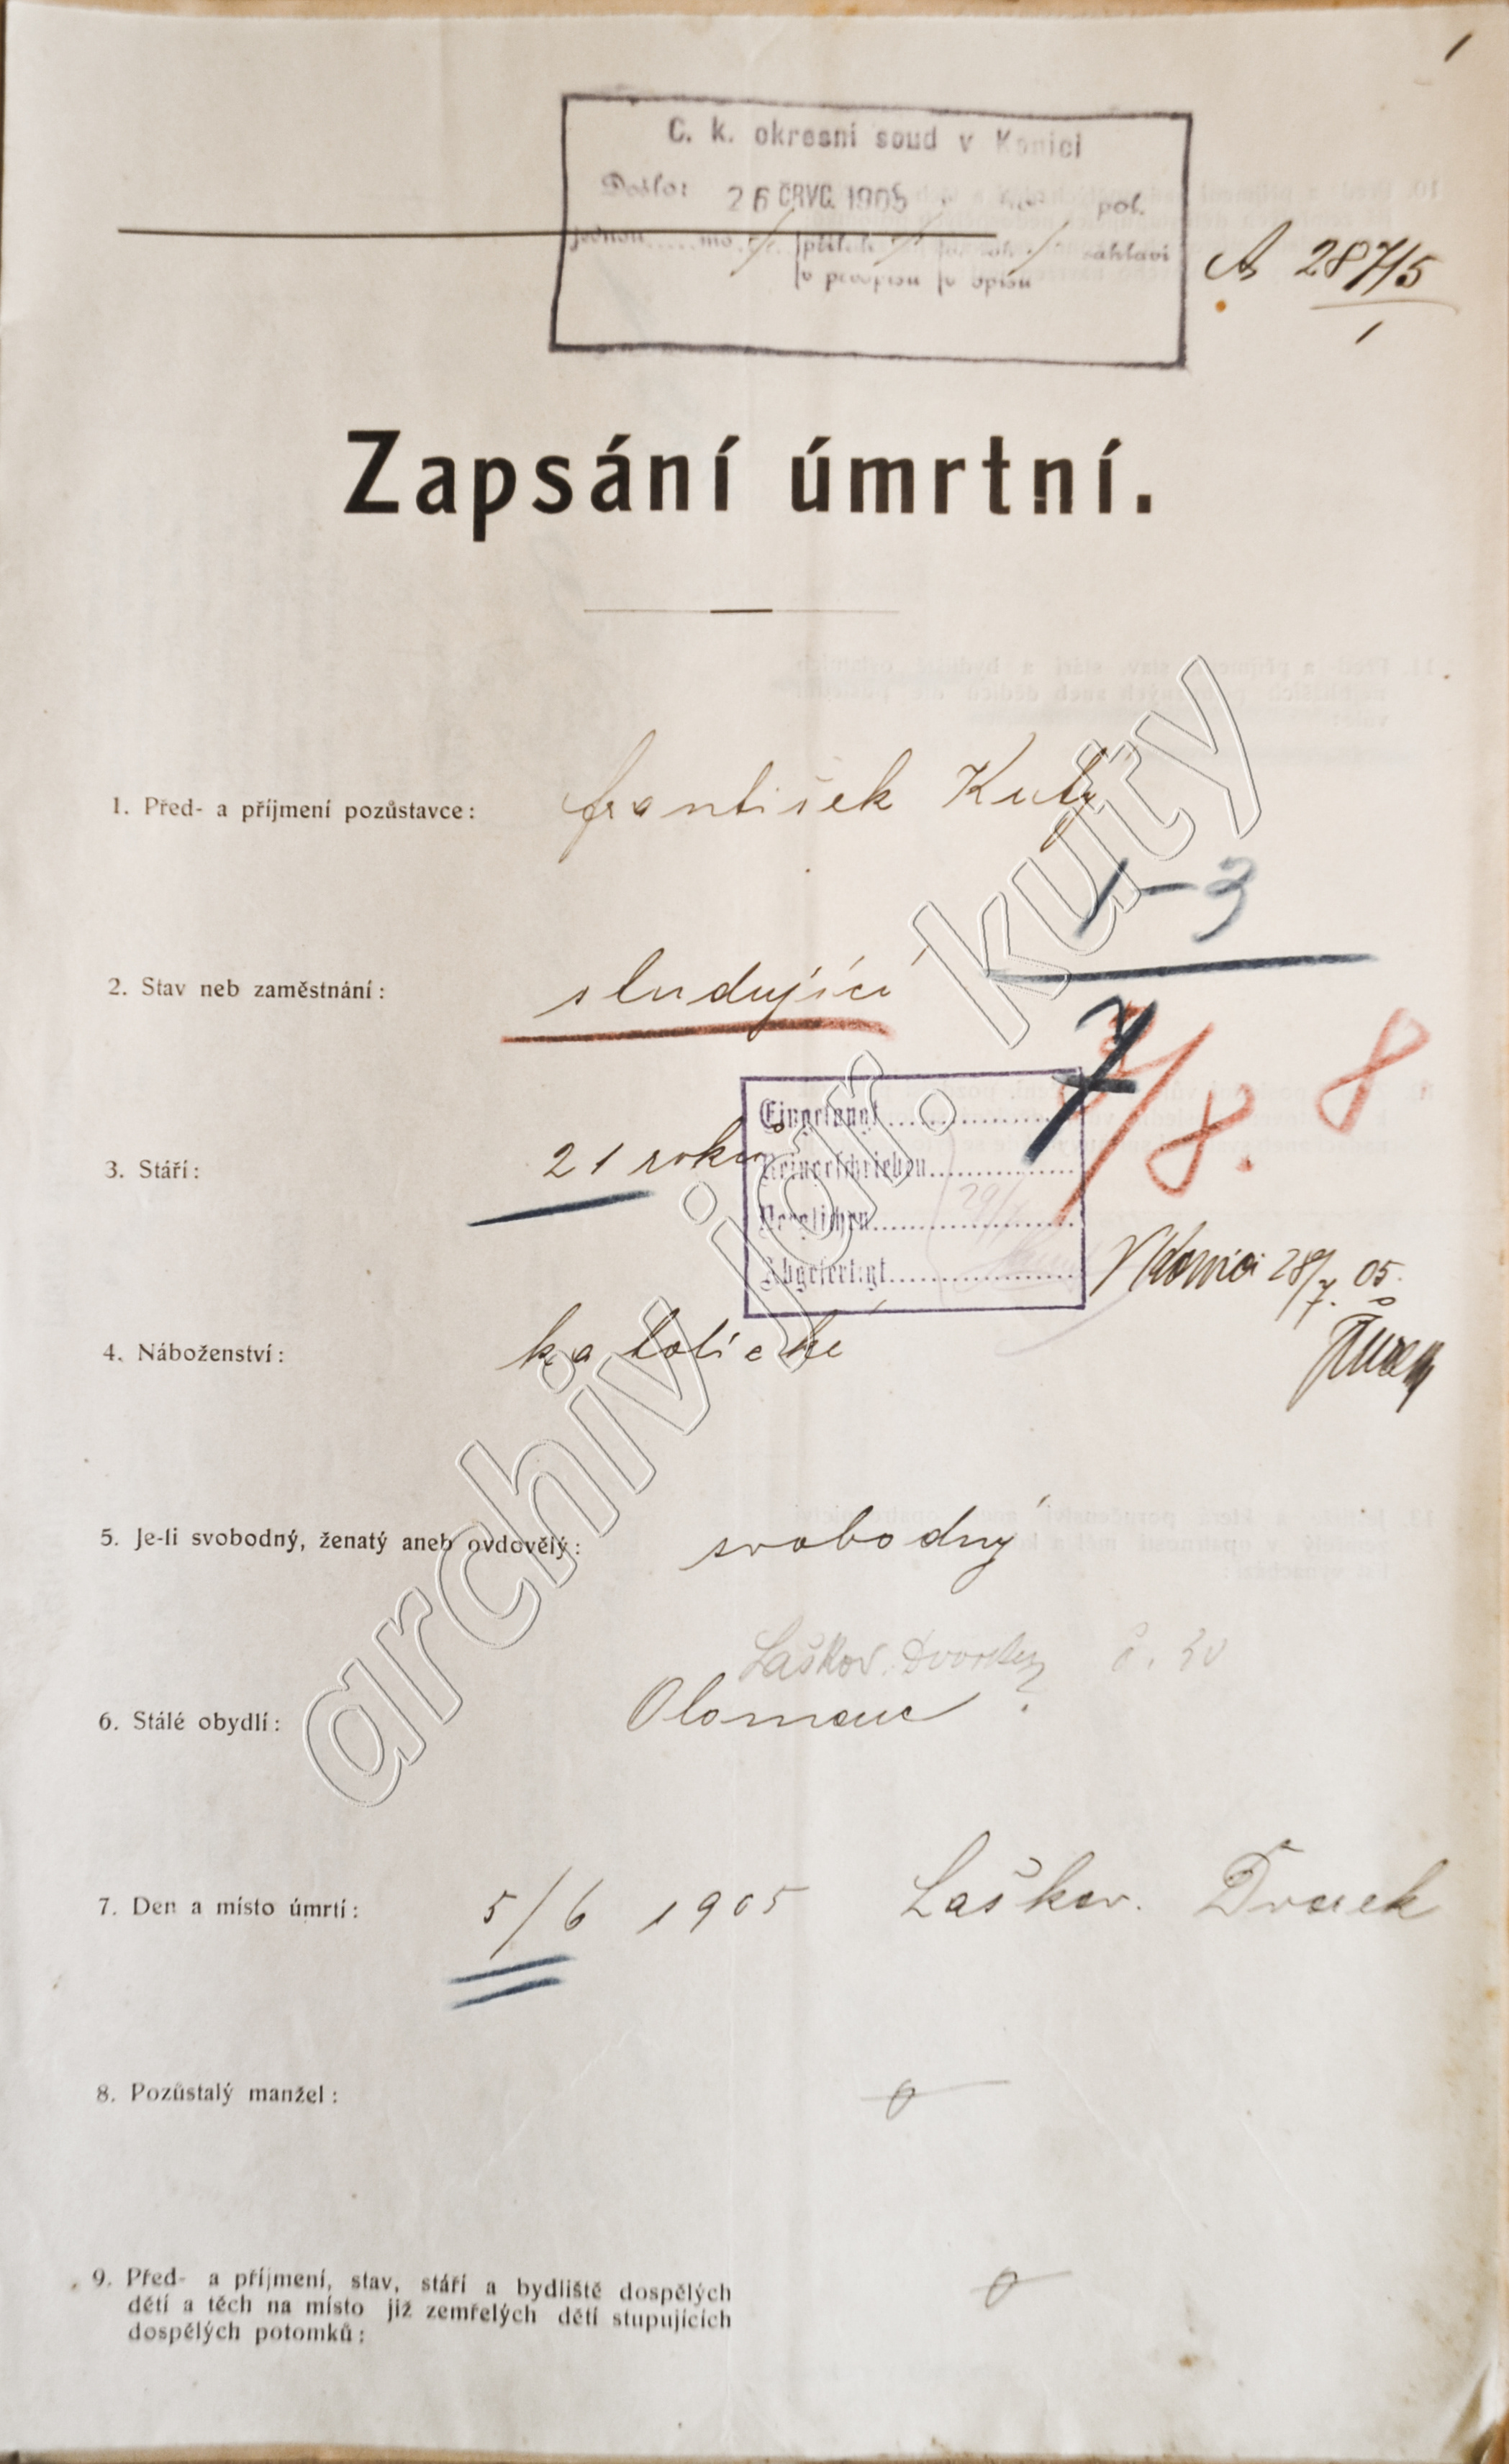 1
C. k. okresní soud v Konici
Došlo: 26 ČRVC. 1905 pol.
jednou mo. příloh sáhlaví
v prvopisu v opisu
A 287/5
1
Zapsání úmrtní.
1. Před- a příjmení pozůstavce: František Kutý
1-3
2. Stav neb zaměstnání: studující
7/8. 8
Eingelangt
3. Stáří: 21 roků
Reingeschrieben
Verglichen
Abgefertigt
V Konici 28/7. 05.
4. Náboženství: katolické
5. Je-li svobodný, ženatý aneb ovdovělý: svobodný
Laškov. Dvorek č. 30
6. Stálé obydlí: Olomouc ?
7. Den a místo úmrtí: 5/6 1905 Laškov. Dvorek
8. Pozůstalý manžel:
9. Před- a příjmení, stav, stáří a bydliště dospělých
dětí a těch na místo již zemřelých dětí stupujících
dospělých potomků:
archiv jar. kutý